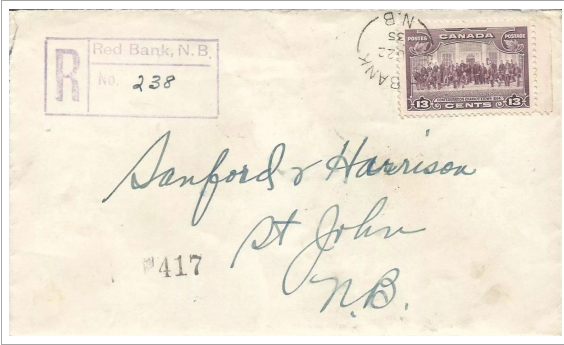 R
Red Bank, N.B.
No. 238
BANK
22
N.B
CANADA
POSTES POSTAGE
13 CENTS 13
Sanford & Harrison
St John
N.B.
417